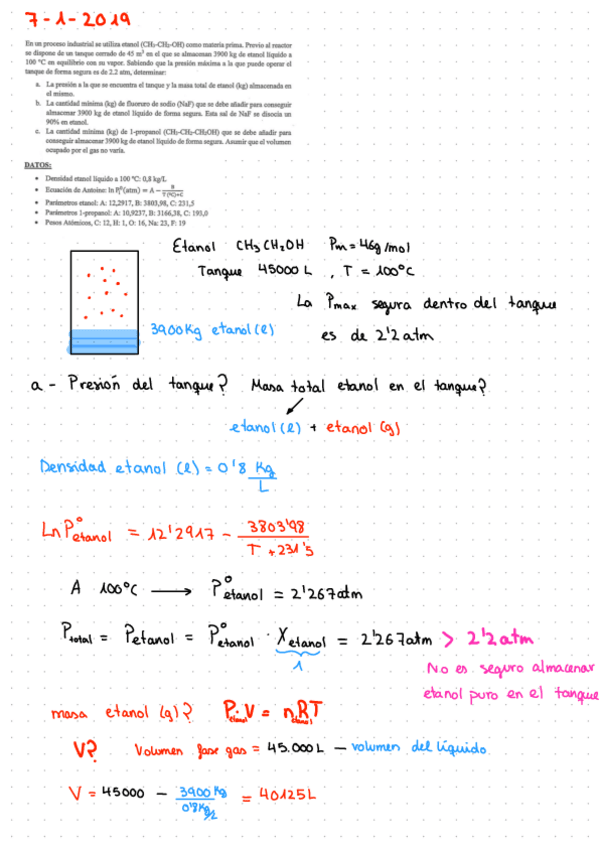 7-1-2019
En un proceso industrial se utiliza etanol (CH₃-CH₂-OH) como materia prima. Previo al reactor
se dispone de un tanque cerrado de 45 m³ en el que se almacenan 3900 kg de etanol líquido a
100 °C en equilibrio con su vapor. Sabiendo que la presión máxima a la que puede operar el
tanque de forma segura es de 2.2 atm, determinar:
a. La presión a la que se encuentra el tanque y la masa total de etanol (kg) almacenada en
el mismo.
b. La cantidad mínima (kg) de fluoruro de sodio (NaF) que se debe añadir para conseguir
almacenar 3900 kg de etanol líquido de forma segura. Esta sal de NaF se disocia un
90% en etanol.
c. La cantidad mínima (kg) de 1-propanol (CH₃-CH₂-CH₂OH) que se debe añadir para
conseguir almacenar 3900 kg de etanol líquido de forma segura. Asumir que el volumen
ocupado por el gas no varía.
DATOS:
• Densidad etanol líquido a 100 °C: 0,8 kg/L
• Ecuación de Antoine: ln P⁰(atm) = A − B / T(ºC)+C
• Parámetros etanol: A: 12,2917, B: 3803,98, C: 231,5
• Parámetros 1-propanol: A: 10,9237, B: 3166,38, C: 193,0
• Pesos Atómicos, C: 12, H: 1, O: 16, Na: 23, F: 19
Etanol CH3CH2OH Pm = 46g/mol
Tanque 45000 L , T = 100°C
La Pmax segura dentro del tanque
es de 2'2 atm
3900 Kg etanol (l)
a - Presión del tanque? Masa total etanol en el tanque?
etanol (l) + etanol (g)
Densidad etanol (l) = 0'8 Kg/L
Ln P°etanol = 12'2917 - 3803'98 / T + 231'5
A 100°C ⟶ P°etanol = 2'267atm
Ptotal = Petanol = P°etanol · Xetanol = 2'267atm > 2'2 atm
1
No es seguro almacenar
etanol puro en el tanque
masa etanol (g)? Petanol · V = netanol RT
V? Volumen fase gas = 45.000 L - volumen del líquido
V = 45000 - 3900 Kg / 0'8 Kg/L = 40125 L